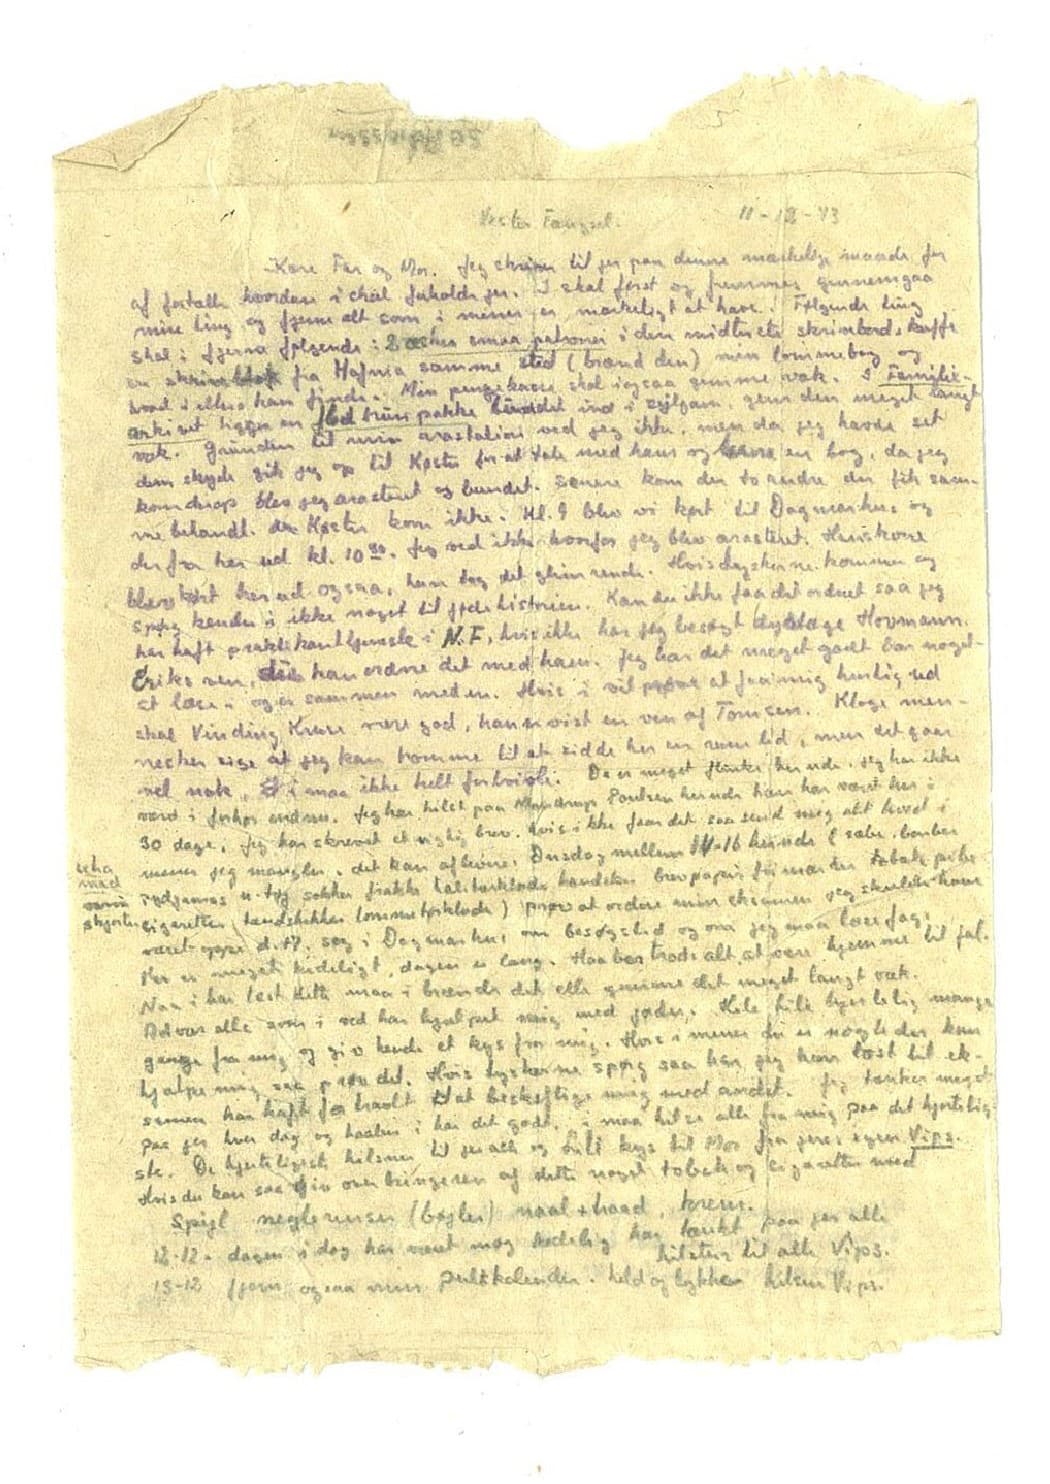 Vestre Fængsel. 11-12-43
Kære Far og Mor. Jeg skriver til jer paa denne mærkelige maade for
at fortælle hvordan i skal forholde jer. I skal først og fremmest gennemgaa
mine ting og fjerne alt som i mener er mærkeligt at have. Følgende ting
skal i fjerne følgende: 2 æsker smaa patroner i den midterste skrivebords skuffe
en skriveblok fra Hafnia samme sted (brænd den) min lommebog og
hvad i ellers kan finde. Min pengekasse skal i ogsaa gemme væk. I Familie-
arkivet ligger en pakke bundet ind i sejlgarn, gem den meget langt
væk. Grunden til min arrestation ved jeg ikke, men da jeg havde set
dem skyde gik jeg op til Køster for at tale med ham og en bog, da jeg
kom derop blev jeg arresteret og bundet. Senere kom der to andre der fik sam-
me behandl. da Køster kom ikke. Kl. 9 blev vi kørt til Dagmarhus og
derfra her ud kl. 10 30. Jeg ved ikke hvorfor jeg blev arresteret.
blev kørt her ud ogsaa, han tog det glimrende. Hvis tyskerne kommer og
spørg kender i ikke noget til jødehistorien. Kan du ikke faa det ordnet saa jeg
har haft praktikanttjeneste i N.F, hvis ikke har jeg besøgt Hovmann.
Eriks ven, kan ordne det med ham. Jeg har det meget godt har noget
at læse i og er sammen med en. Hvis i vil prøve at faa mig hurtig ud
skal Vinding Kruse være god, han er vist en ven af Tomsen. Kloge men-
nesker siger at jeg kan komme til at sidde her en rum tid, men det gaar
vel nok, i maa ikke helt fortvivle. De er meget flinke her ude. Jeg har ikke
været i forhør endnu. Jeg har hilst paa Poulsen herude han har været her i
30 dage, jeg har skrevet et rigtig brev. hvis i ikke faar det saa send mig alt hvad i
mener jeg mangler, det kan afleveres Onsdag mellem 14-16 herude (sæbe, barber
pydjamas u-tøj sokker frakke halstørklæde handsker brevpapir frimærker tobak pibe
cigaretter tændstikker lommetørklæde) prøv at ordne min eksamen jeg skulde have
været oppe d. 17. søg i Dagmarhus om besøgstid og om jeg maa læse fag.
Her er meget kedeligt, dagen er lang. Haaber trods alt at være hjemme til jul.
Naar i har læst dette maa i brænde det eller gemme det meget langt væk.
Det var alle som i ved har hjulpet mig med jøder. Hils lili hjertelig mange
gange fra mig og giv hende et kys fra mig. Hvis i mener der er nogle der kan
hjælpe mig saa prøv det. Hvis tyskerne spørg saa har jeg kun læst til ek-
samen har haft for travlt til at beskæftige mig med andet. Jeg tænker meget
paa jer hver dag og haaber i har det godt. i maa hilse alle fra mig paa det hjertelig-
ste. De hjerteligste hilsner til jer alle og Lili kys til Mor fra jeres egen Vips.
Hvis du kan saa giv overbringeren af dette noget tobak og cigaretter med
Spejl neglerenser (bøjler) naal + traad, krem.
12-12. dagen i dag har været meget kedelig har tænkt paa jer alle
hilsner til alle Vips.
13-12 fjern ogsaa min pultkalender. held og lykke hilsen Vips.